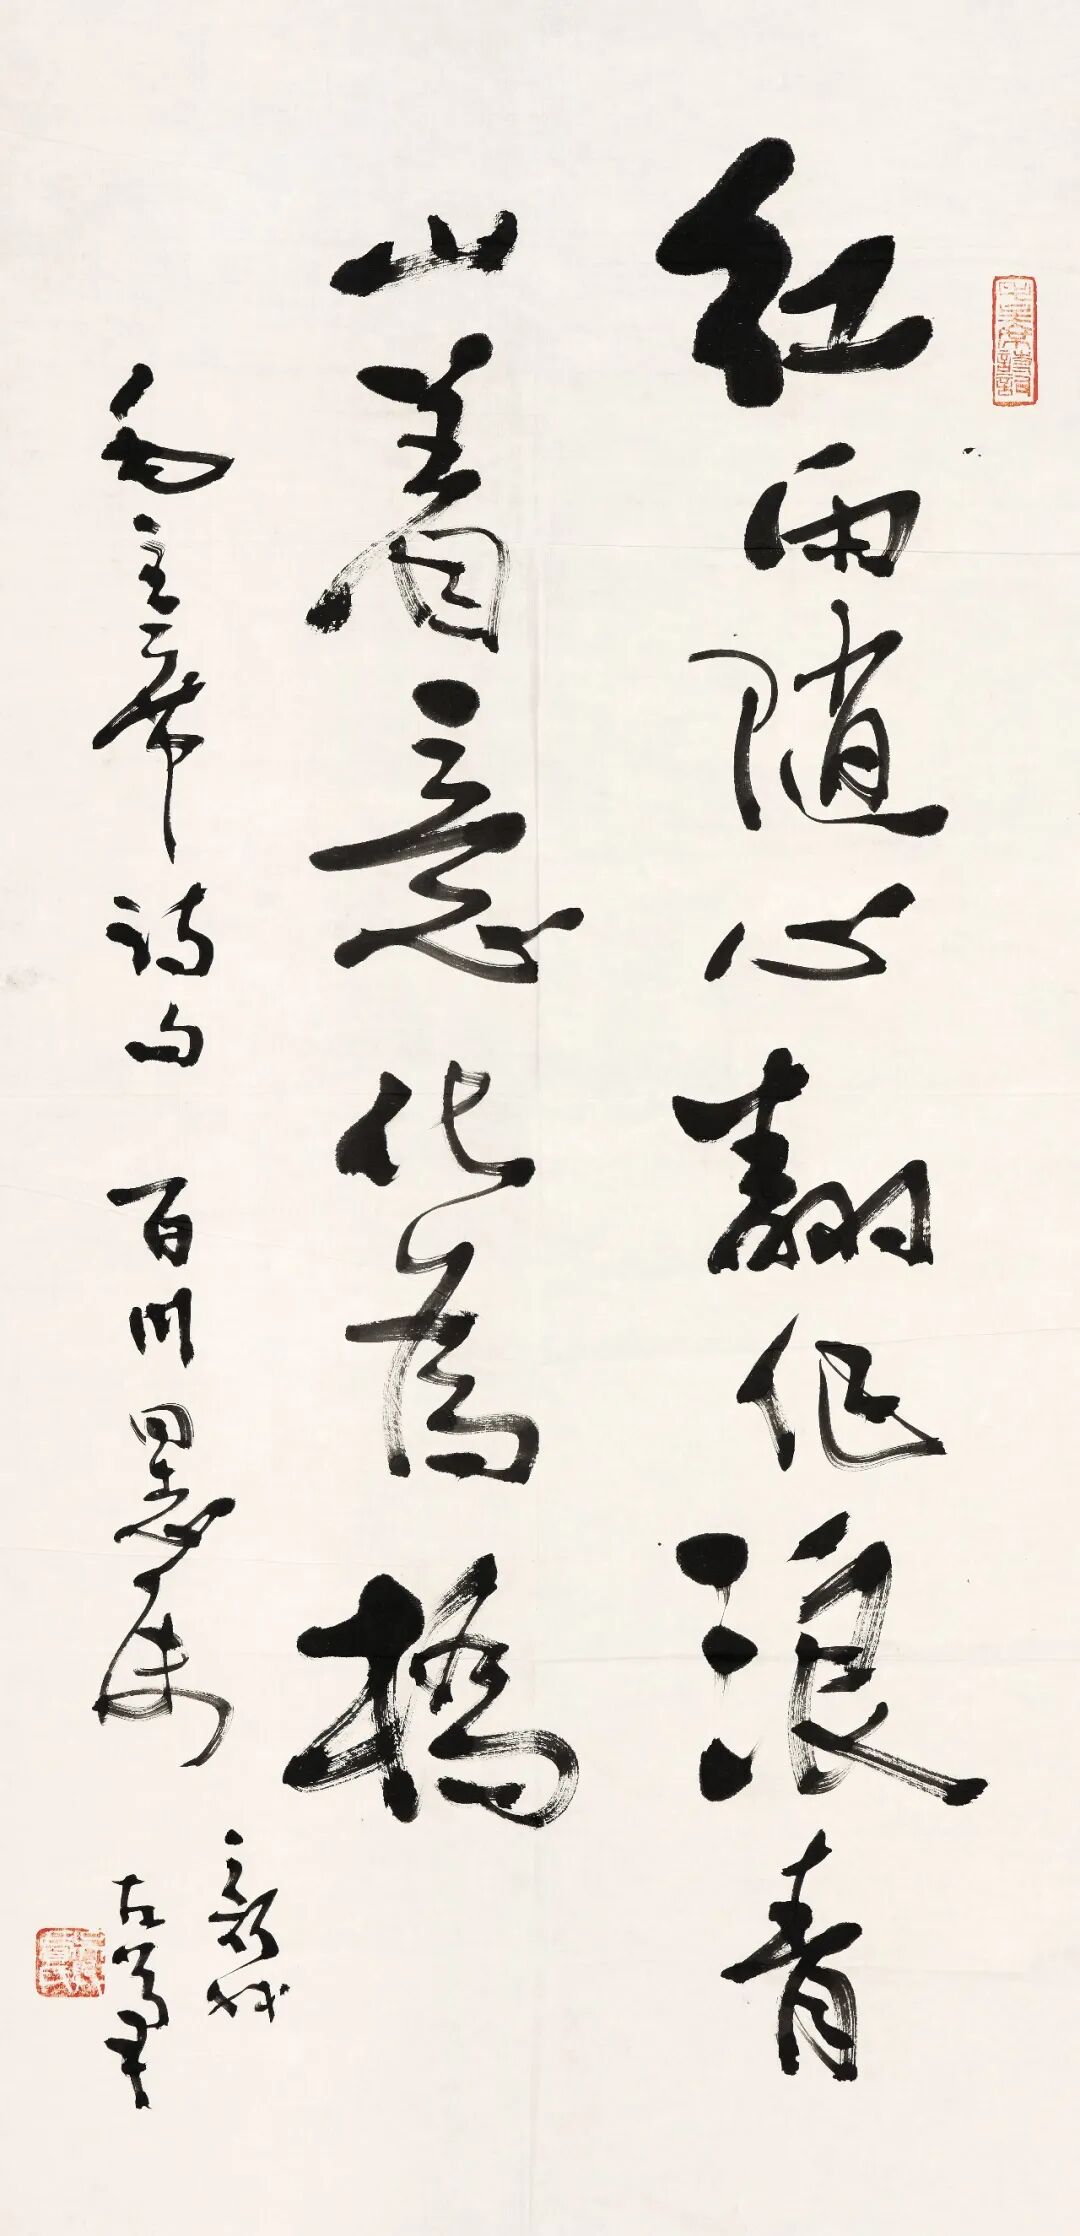 紅雨随心翻作浪青
山着意化為橋
毛主席诗句 百川同志属
新我
左筆